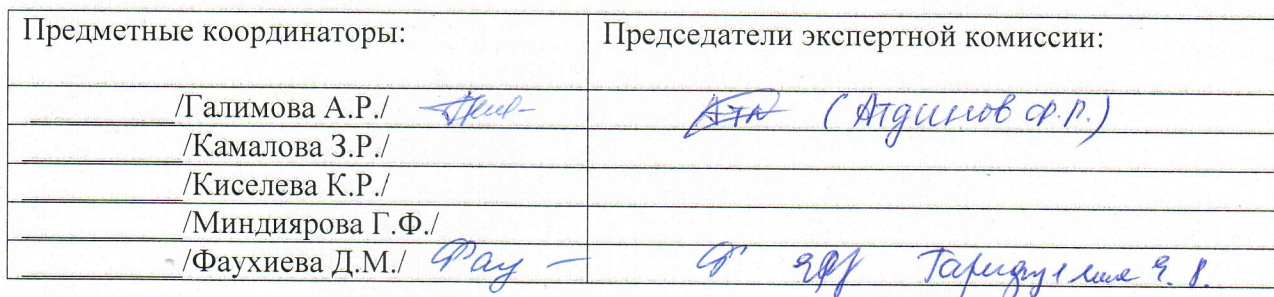 Предметные координаторы: Председатели экспертной комиссии:
/Галимова А.Р./ (Атдинов Ф.Р.)
/Камалова З.Р./
/Киселева К.Р./
/Миндиярова Г.Ф./
/Фаухиева Д.М./ Фау